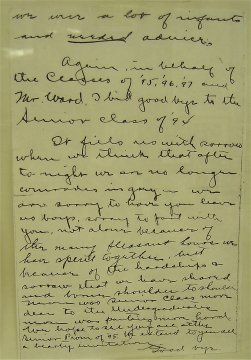 we were a lot of infants
and needed advice.
Again, in behalf of
the Classes of '95, '96, '97 and
Mr. Ward, I bid good bye to the
Senior Class of '94
It fills us with sorrow
when we think that after
to night we are no longer
comrades in gray. We
are sorry to have you leave
us boys, sorry to part with
you, not alone because of
the many pleasant hours we
have spent together, but
because of the hardships &
sorrow that we have shared
and borne shoulder to shoulder
was Senior Class more
dear to the
men, was parting more hard.
We hope to see you all at the
Senior Prom of '95 & extend to you all
a hearty invitation